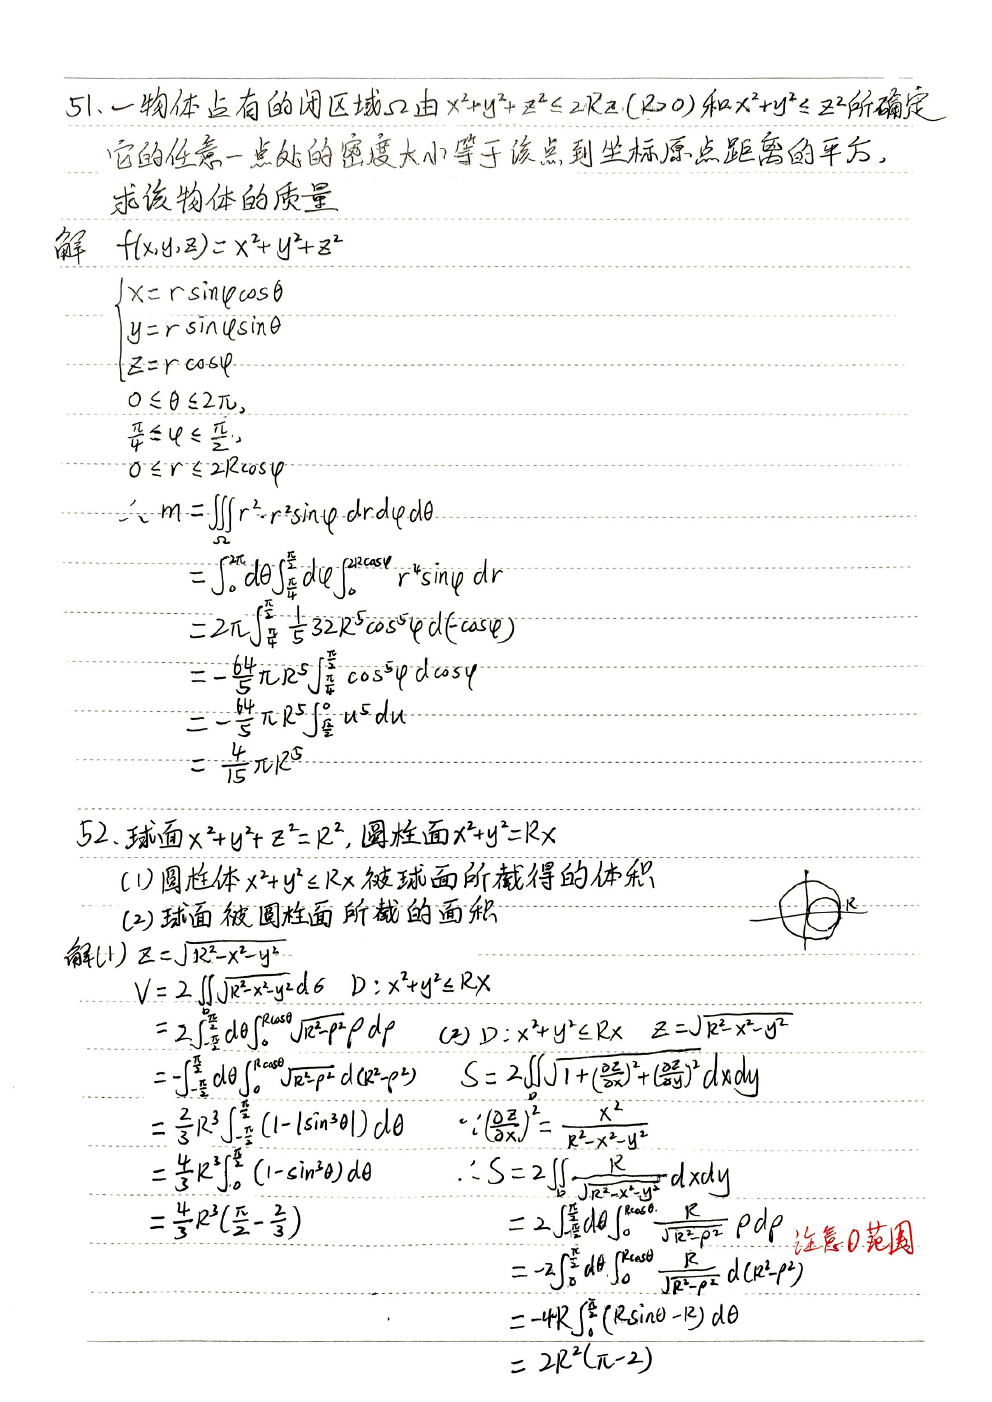 51、一物体占有的闭区域Ω由x²+y²+z²≤2Rz(R>0)和x²+y²≤z²所确定
它的任意一点处的密度大小等于该点到坐标原点距离的平方,
求该物体的质量
解 f(x,y,z)=x²+y²+z²
{x=rsinφcosθ
y=rsinφsinθ
z=rcosφ
0≤θ≤2π,
π/4≤φ≤π/2,
0≤r≤2Rcosφ
∴ m=∭_Ω r²·r²sinφ drdφdθ
=∫_0^{2π}dθ∫_{π/4}^{π/2}dφ∫_0^{2Rcosφ} r⁴sinφ dr
=2π∫_{π/4}^{π/2} 1/5 32R⁵cos⁵φ d(-cosφ)
=-64/5 πR⁵∫_{π/4}^{π/2} cos⁵φ dcosφ
=-64/5 πR⁵∫_{√2/2}^0 u⁵du
=4/15 πR⁵
52、球面x²+y²+z²=R²,圆柱面x²+y²=Rx
(1)圆柱体x²+y²≤Rx被球面所截得的体积
(2)球面被圆柱面所截的面积
R
解(1) z=√(R²-x²-y²)
V=2∬_D √(R²-x²-y²)dσ D:x²+y²≤Rx
=2∫_{-π/2}^{π/2}dθ∫_0^{Rcosθ}√(R²-ρ²)ρdρ
=-∫_{-π/2}^{π/2}dθ∫_0^{Rcosθ}√(R²-ρ²) d(R²-ρ²)
=2/3 R³∫_{-π/2}^{π/2}(1-|sin³θ|)dθ
=4/3 R³∫_0^{π/2}(1-sin³θ)dθ
=4/3 R³(π/2-2/3)
(2) D:x²+y²≤Rx z=√(R²-x²-y²)
S=2∬_D √(1+(∂z/∂x)²+(∂z/∂y)²)dxdy
∵(∂z/∂x)²=x²/(R²-x²-y²)
∴S=2∬_D R/√(R²-x²-y²) dxdy
=2∫_{-π/2}^{π/2}dθ∫_0^{Rcosθ} R/√(R²-ρ²) ρdρ
注意θ范围
=-2∫_0^{π/2}dθ∫_0^{Rcosθ} R/√(R²-ρ²) d(R²-ρ²)
=-4R∫_0^{π/2}(Rsinθ-R)dθ
=2R²(π-2)